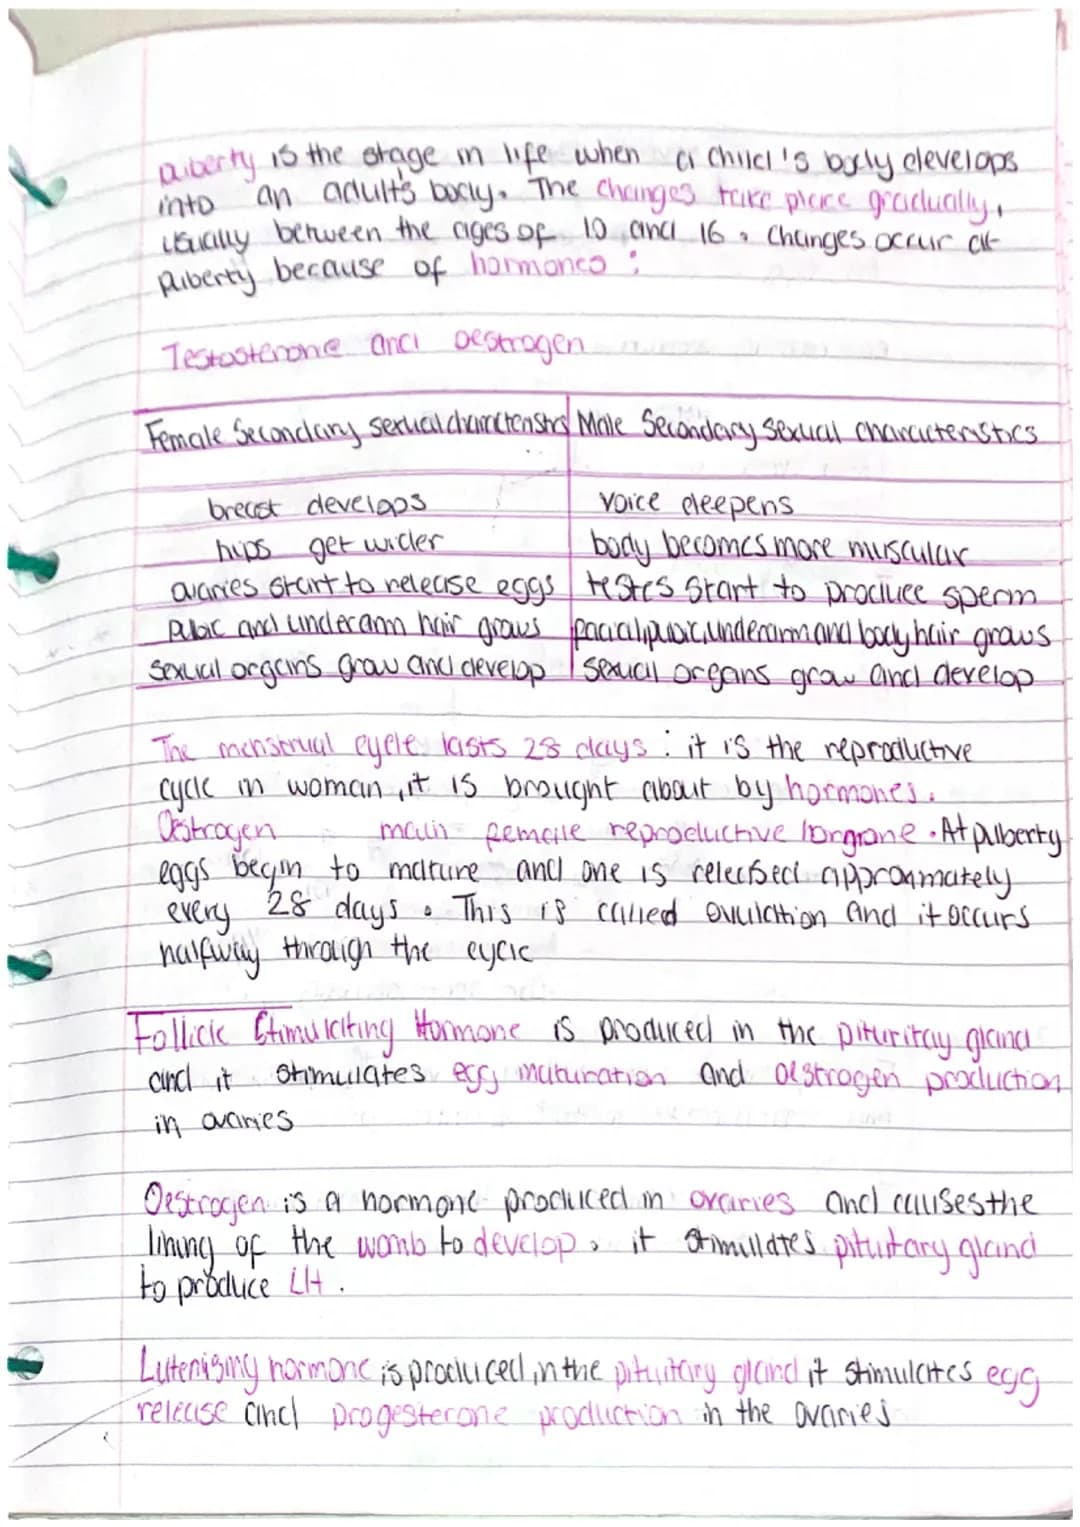 puberty is the stage in life when a child's body develops
into an adult's body. The changes take place gradually,
usually between the ages of 10 and 16. Changes occur at
puberty because of hormones :
Testosterone and oestrogen
Female Secondary sexual characteristics | Male Secondary sexual characteristics
breast develops | voice deepens
hips get wider | body becomes more muscular
ovaries start to release eggs | testes start to produce sperm
pubic and underarm hair grows | facial, pubic, underarm and body hair grows
sexual organs grow and develop | sexual organs grow and develop
The menstrual cycle lasts 28 days : it is the reproductive
cycle in woman, it is brought about by hormones.
Oestrogen main female reproductive horgrone. At pulberty
eggs begin to mature and one is released approxmately
every 28 days. This is called ovulation and it occurs
halfway through the cycle
Follicle Stimulating Hormone is produced in the pituritay gland
and it stimulates egg maturation and oestrogen production
in ovaries
Oestrogen is a hormone produced in ovaries and causes the
lining of the womb to develop, it stimillates pituitary gland
to produce LH.
Lutenising hormone is produced, in the pituitary gland it stimulates egg
release and progesterone production in the ovaries